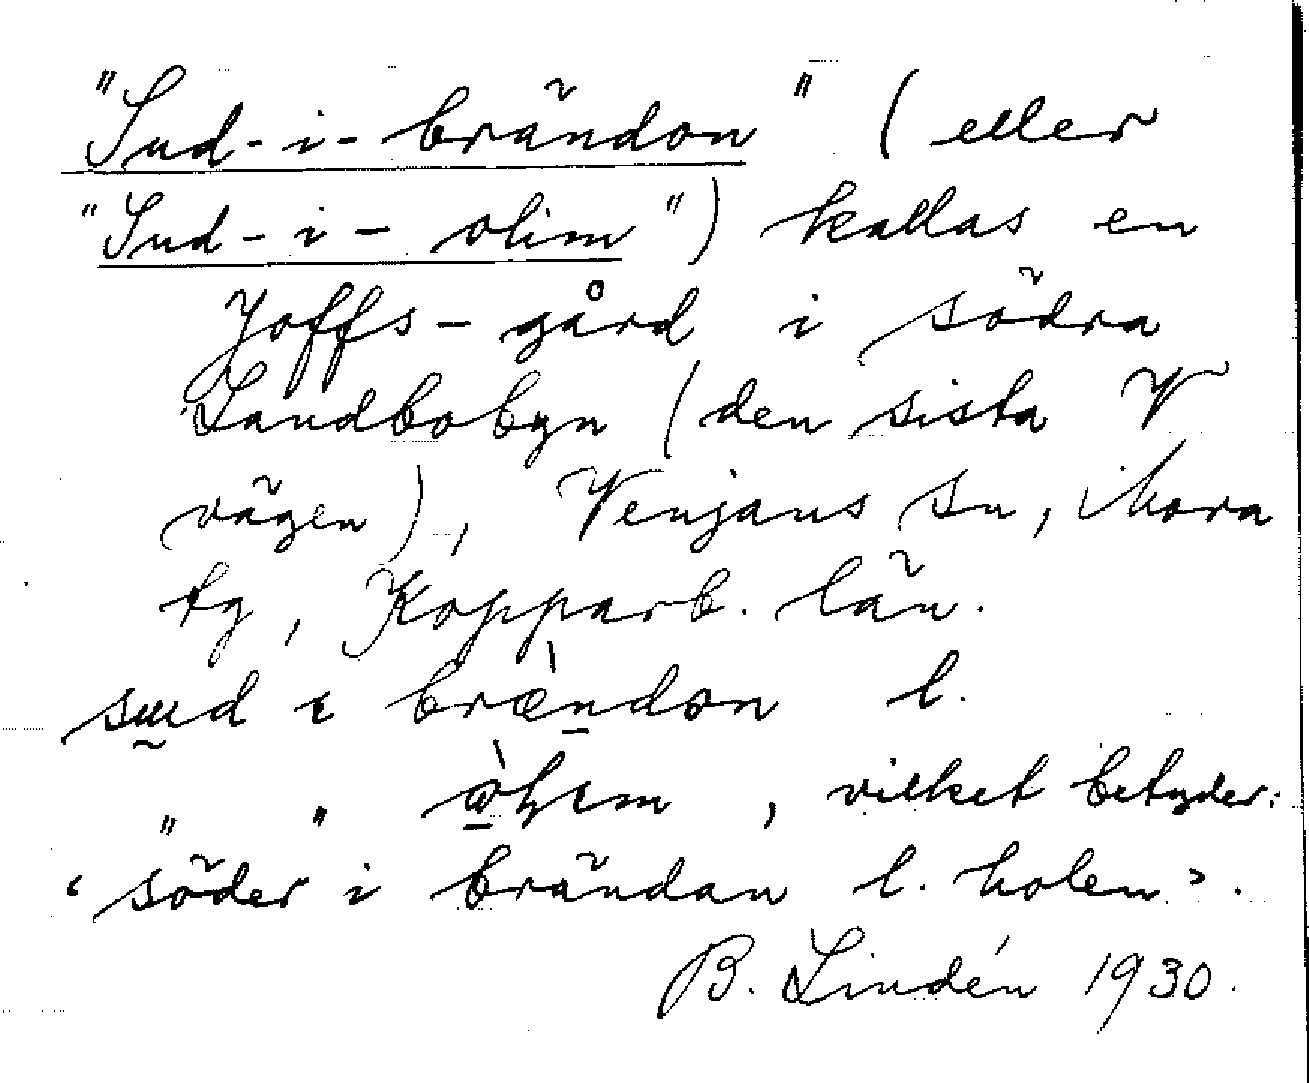 "Sud-i-brändon" (eller
"Sud-i-olim") kallas en
Joffs-gård i södra
Landbobyn (den sista V
vägen), Venjans sn, Mora
tg, Kopparb. län.
sɯd ɩ brændon l.
" " , vilket betyder:
‘söder i brändan l. holen’.
B. Lindén 1930.